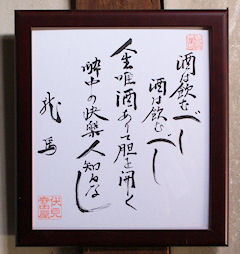 酒は飲むべし
酒は飲むべし
人生唯酒ありて胆を開く
酔中の快樂人知るなし
龍馬
伏見